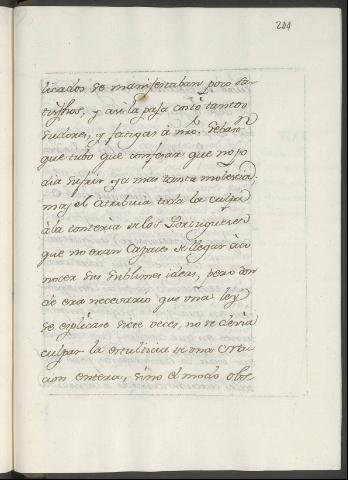 224
licados se manifestaban poco sa-
tisfhos, y asi la pasa costó tantos
sudores, y fatigas à nro. Sebastn
que tubo que confesar que no po
dia sufrir ya mas tanta molestia;
mas el atribuia toda la culpa
à la tonteria de los Portugueses
que no eran capaces de llegar à co
nocer sus sublimes ideas, pero don
de era necesario que una ley
se esplicase doce veces, no se devia
culpar la estulticia de una
cion entera, sino el modo obs-